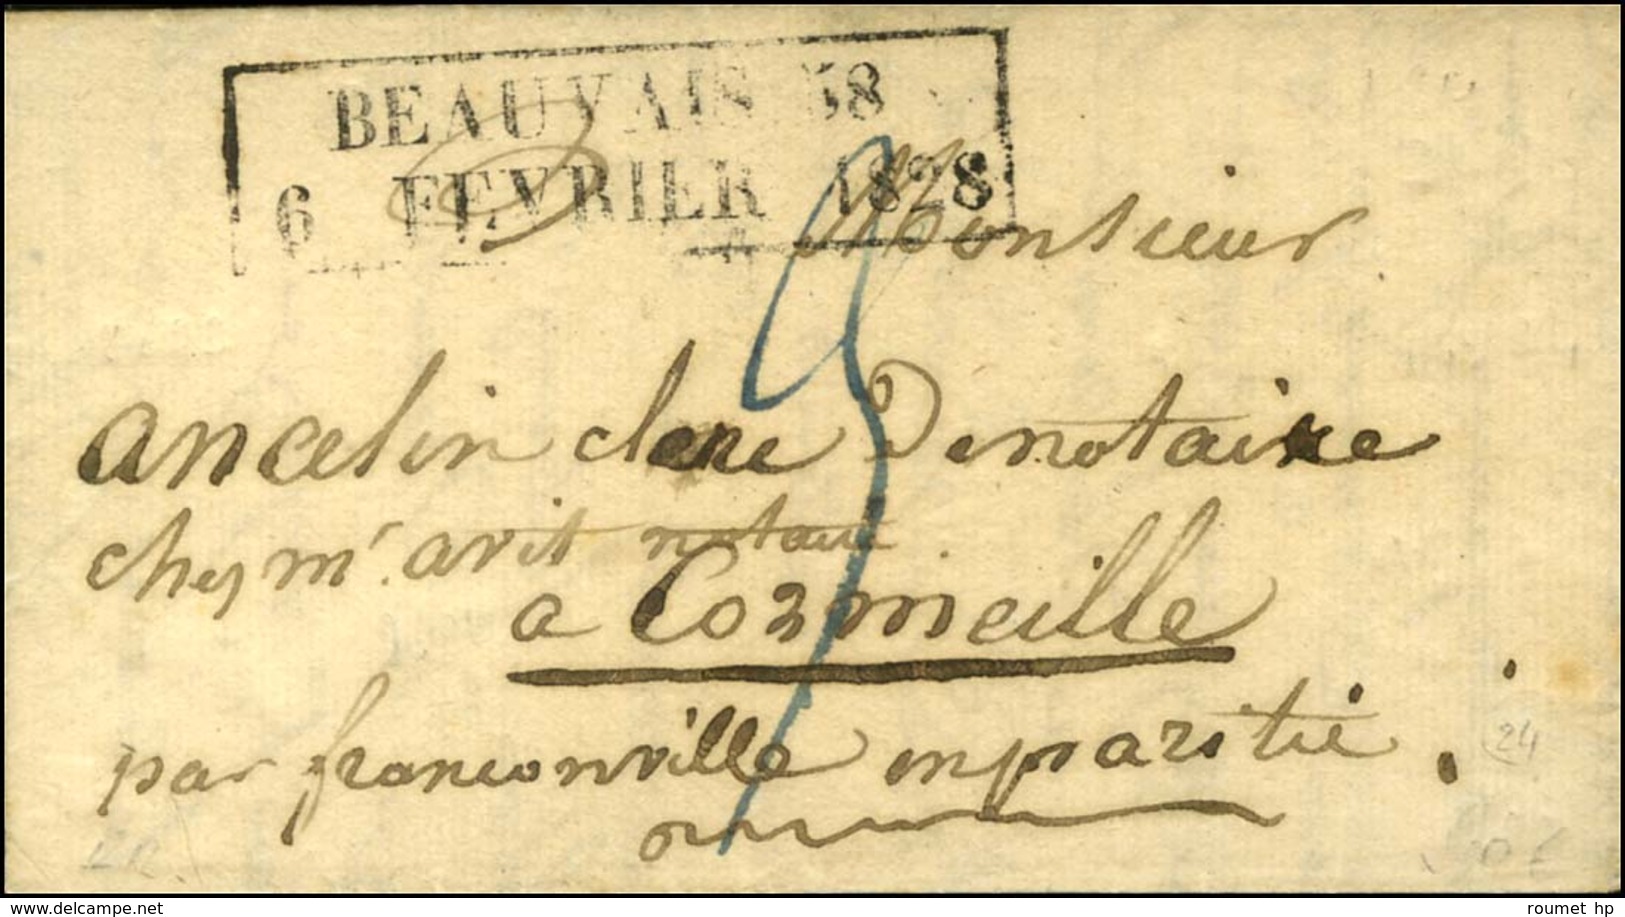 BEAUVAIS 58
6 FEVRIER 1828
Monsieur
ancelin clerc De notaire
chez mr. avit notaire
a Cormeille
par franconville en parisie
24
roumet hp